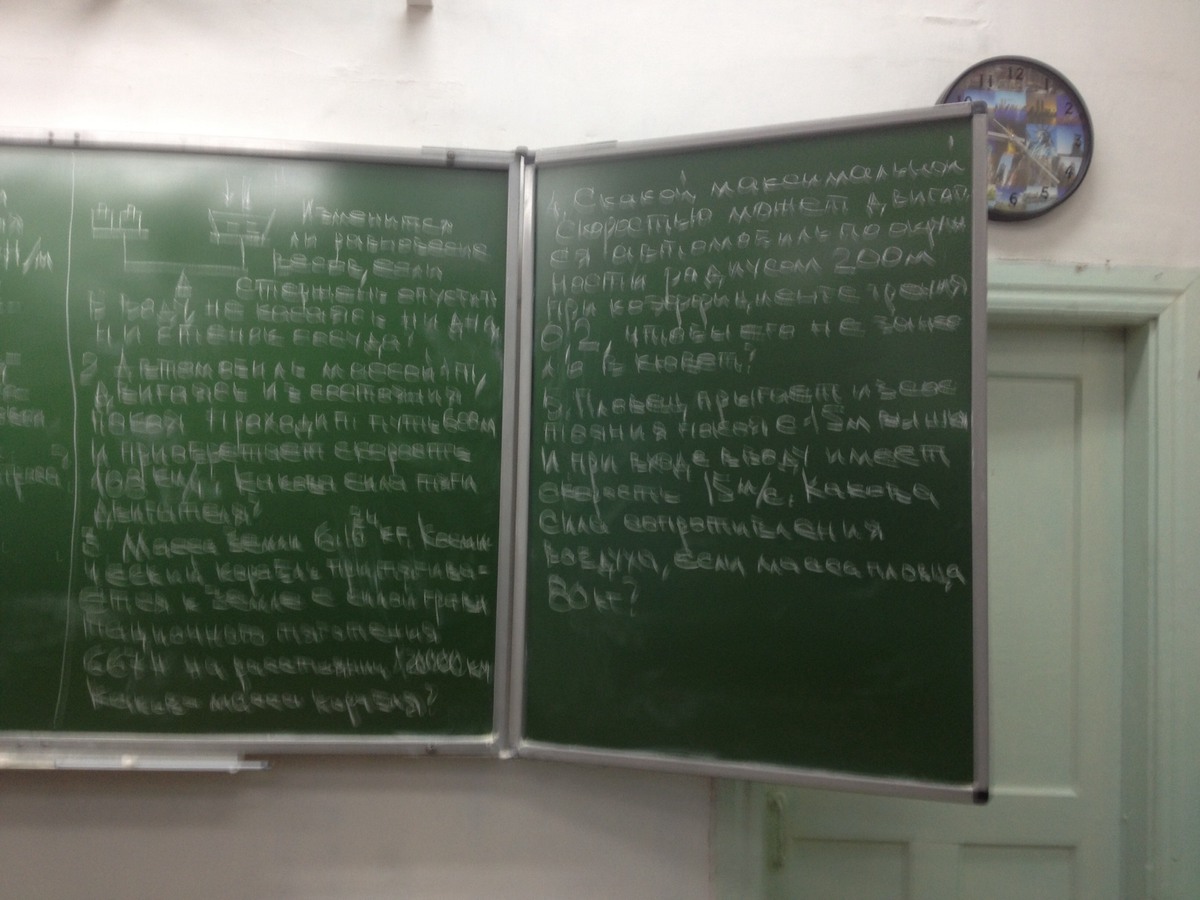 Н/м
Изменится
ли равновесие
весов, если
стержень опустит
в воду, не касаясь ни дна
ни стенок сосуда?
2. Автомобиль массой 1т,
двигаясь из состояния
покоя проходит путь
и приобретает скорость
108 км/ч. Какова сила тяги
двигателя?
3. Масса Земли 6·10²⁴ кг, Косми
ческий корабль притягива=
ется к Земле с силой грави
тационного тяготения
667 Н на расстоянии
Какова масса корабля?
С какой максимальной
скоростью может двигат
ся автомобиль по окруж
ности радиусом 200м
при коэффициенте трения
0,2 чтобы его не занес
ло в кювет?
5. Пловец прыгает из сос
тояния покоя с вышки
и при входе в воду имеет
скорость 15 м/с. Какова
сила сопротивления
воздуха, если масса пловца
80 кг?
11 12 1
10 2
3
4
6 5